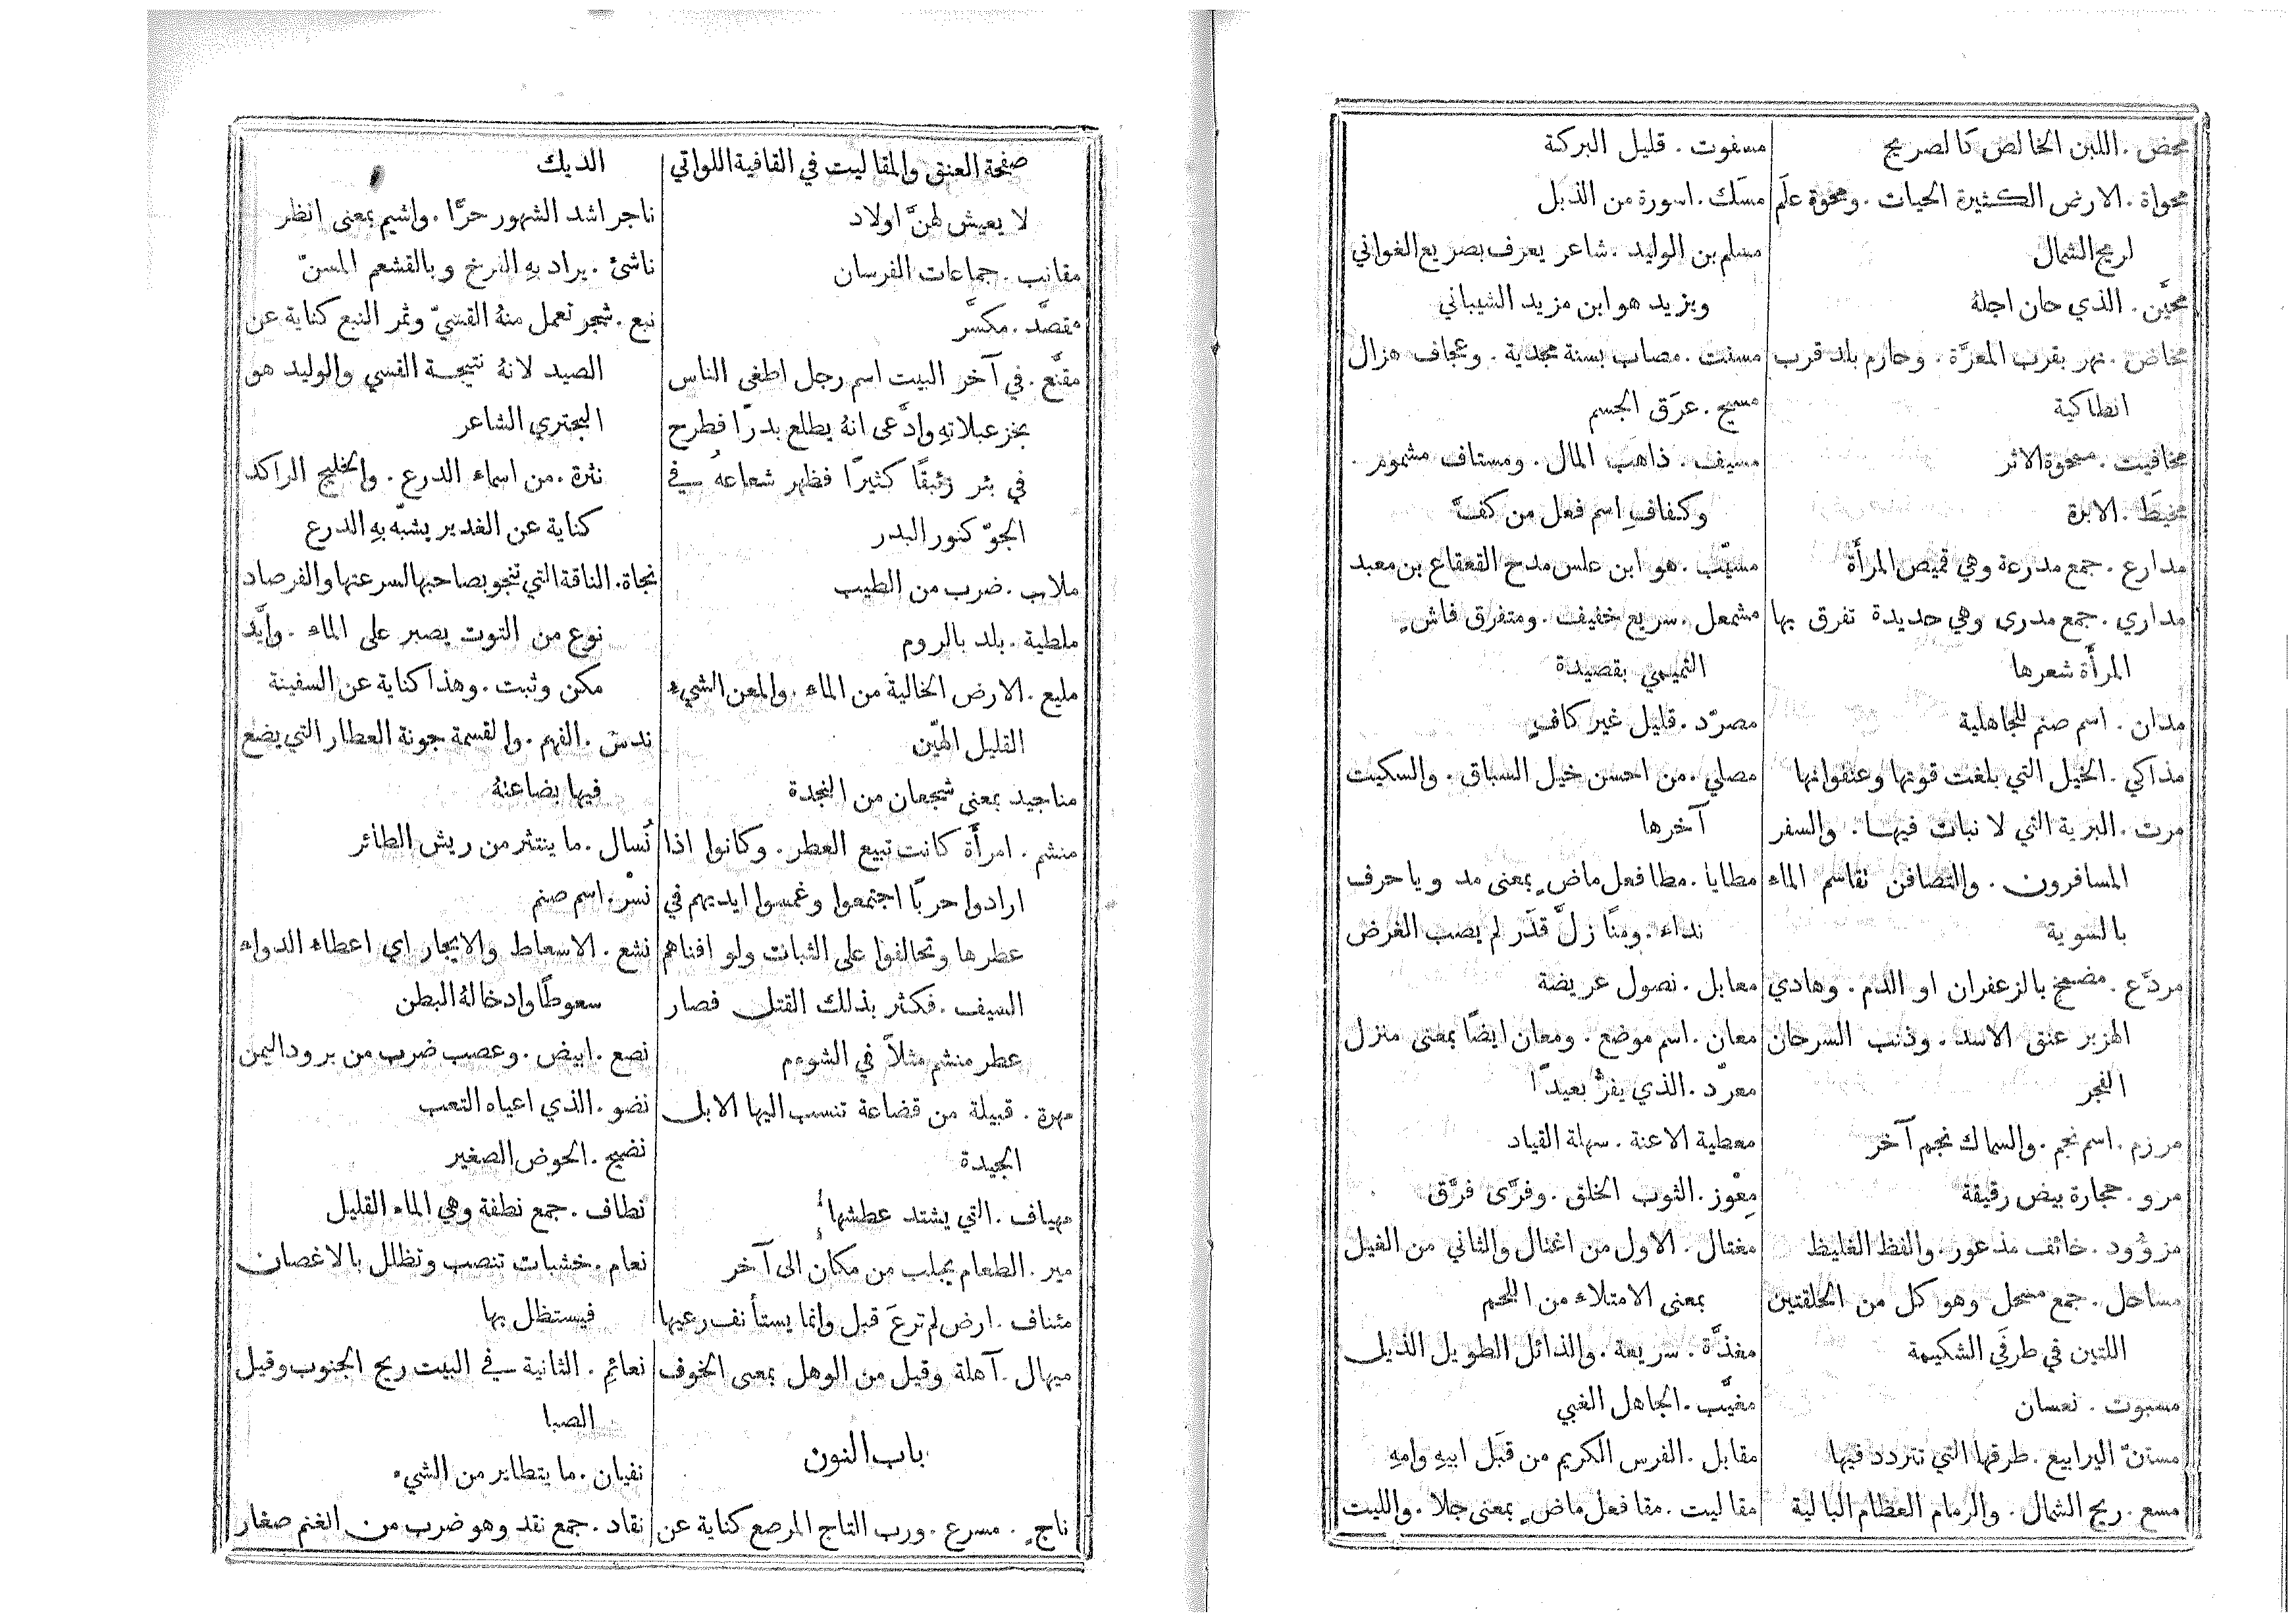 محض . اللبن الخالص كالصريح
محواة . الارض الكثيرة الحيات . ومحوة علَم
لريح الشمال
محيَّن . الذي حان اجلهُ
مخاض . نهر بقرب المعرَّة . وحازم بلد قرب
انطاكية
مخافيت . ممحوة الاثر
مخيَط . الابرة
مدارع . جمع مدرعة وهي قميص المرأَة
مداري . جمع مدرى وهي حديدة تفرق بها
المرأَة شعرها
مدان . اسم صنم للجاهلية
مذاكي . الخيل التي بلغت قوتها وعنفوانها
مرت . البرية التي لا نبات فيها . والسفر
المسافرون . والتصافن تقاسم الماء
بالسوية
مردَّع . مضمخ بالزعفران او الدم . وهادي
الهزبر عنق الاسد . وذنب السرحان
الفجر
مرزم . اسم نجم . والسماك نجم آخر
مرو . حجارة بيض رقيقة
مزؤود . خائف مذعور . والفظ الغليظ
مساحل . جمع مسحل وهو كل من الحلقتين
اللتين في طرفَي الشكيمة
مسبوت . نعسان
مستنّ اليرابيع . طرقها التي تتردد فيها
مسع . ريح الشمال . والرمام العظام البالية
مسفوت . قليل البركة
مسَك . اسورة من الذبل
مسلم بن الوليد . شاعر يعرف بصريع الغواني
ويزيد هو ابن مزيد الشيباني
مسنت . مصاب بسنة مجدية . وعجاف هزال
مسيح . عرَق الجسم
مسيف . ذاهب المال . ومستاف مشموم .
وكفافِ اسم فعل من كفَّ
مسيّب . هو ابن علس مدح القعقاع بن معبد
مشمعل . سريع خفيف . ومتفرق فاشٍ
التميمي بقصيدة
مصرّد . قليل غير كافٍ
مصلي . من احسن خيل السباق . والسكيت
آخرها
مطايا . مطا فعل ماضٍ بمعنى مد ويا حرف
نداء . ومنًا زلَّ قدَر لم يصب الغرض
معابل . نصول عريضة
معان . اسم موضع . ومعان ايضًا بمعنى منزل
معرّد . الذي يفرُّ بعيدًا
معطية الاعنة . سهلة القياد
مِعْوز . الثوب الخلق . وفرَّى فرَّق
مغتال . الاول من اغتال والثاني من الغيل
بمعنى الامتلاء من اللحم
مغذَّة . سريعة . والذائل الطويل الذيل
مغيَّب . الجاهل الغبي
مقابل . الفرس الكريم من قبَل ابيهِ وامهِ
مقاليت . مقا فعل ماضٍ بمعنى جلا . والليت
صفحة العنق والمقاليت في القافية اللواتي
لا يعيش لهنَّ اولاد
مقانب . جماعات الفرسان
مقصَّد . مكسَّر
مقنَّع . في آخر البيت اسم رجل اطغى الناس
بخزعبلاتهِ وادَّعى انهُ يطلع بدرًا فطرح
في بئر زئبقًا كثيرًا فظهر شعاعهُ في
الجوّ كنور البدر
ملاب . ضرب من الطيب
ملطية . بلد بالروم
مليع . الارض الخالية من الماء . والمعن الشيء
القليل الهيّن
مناجيد بمعنى شجعان من النجدة
منشم . امرأَة كانت تبيع العطر . وكانوا اذا
ارادوا حربًا اجتمعوا وغمسوا ايديهم في
عطرها وتحالفوا على الثبات ولو افناهم
السيف . فكثر بذلك القتل فصار
عطر منشم مثلاً في الشوءم
مهرة . قبيلة من قضاعة تنسب اليها الابل
الجيدة
مهياف . التي يشتد عطشها
مير . الطعام يجلب من مكان الى آخر
مئناف . ارض لم ترعَ قبل وانما يستأنف رعيها
ميهال . آهلة وقيل من الوهل بمعنى الخوف
باب النون
ناجٍ . مسرع . ورب التاج المرصع كناية عن
الديك
ناجر اشد الشهور حرًّا . واشيم بمعنى انظر
ناشئ . يراد بهِ الفرخ وبالقشعم المسنّ
نبع . شجر تعمل منهُ القسيّ وثمر النبع كناية عن
الصيد لانهُ نتيجة القسي والوليد هو
البحتري الشاعر
نثرة . من اسماء الدرع . والخليج الراكد
كناية عن الغدير يشبَّه بهِ الدرع
نجاة . الناقة التي تنجو بصاحبها لسرعتها والفرصاد
نوع من التوت يصبر على الماء . وايَّد
مكن وثبت . وهذا كناية عن السفينة
ندس . الفهم . والقسمة جونة العطار التي يضع
فيها بضاعتهُ
نُسال . ما ينتثر من ريش الطائر
نسْر . اسم صنم
نشع . الاسعاط والايجار اي اعطاء الدواء
سعوطًا وادخالهُ البطن
نصع . ابيض . وعصب ضرب من برود اليمن
نضو . الذي اعياه التعب
نضيح . الحوض الصغير
نطاف . جمع نطفة وهي الماء القليل
نعام . خشبات تنصب وتظلل بالاغصان
فيستظل بها
نعائم . الثانية في البيت ريح الجنوب وقيل
الصبا
نفيان . ما يتطاير من الشيء
نقاد . جمع نقد وهو ضرب من الغنم صغار